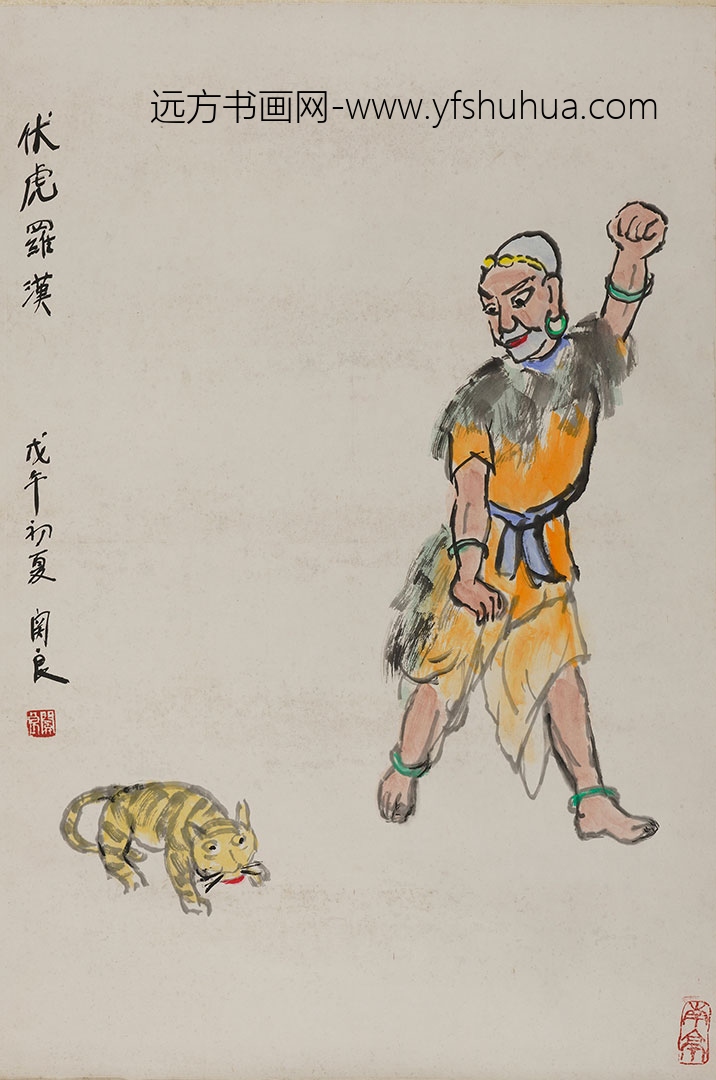 远方书画网-www.yfshuhua.com
伏虎羅漢
戊午初夏 関良